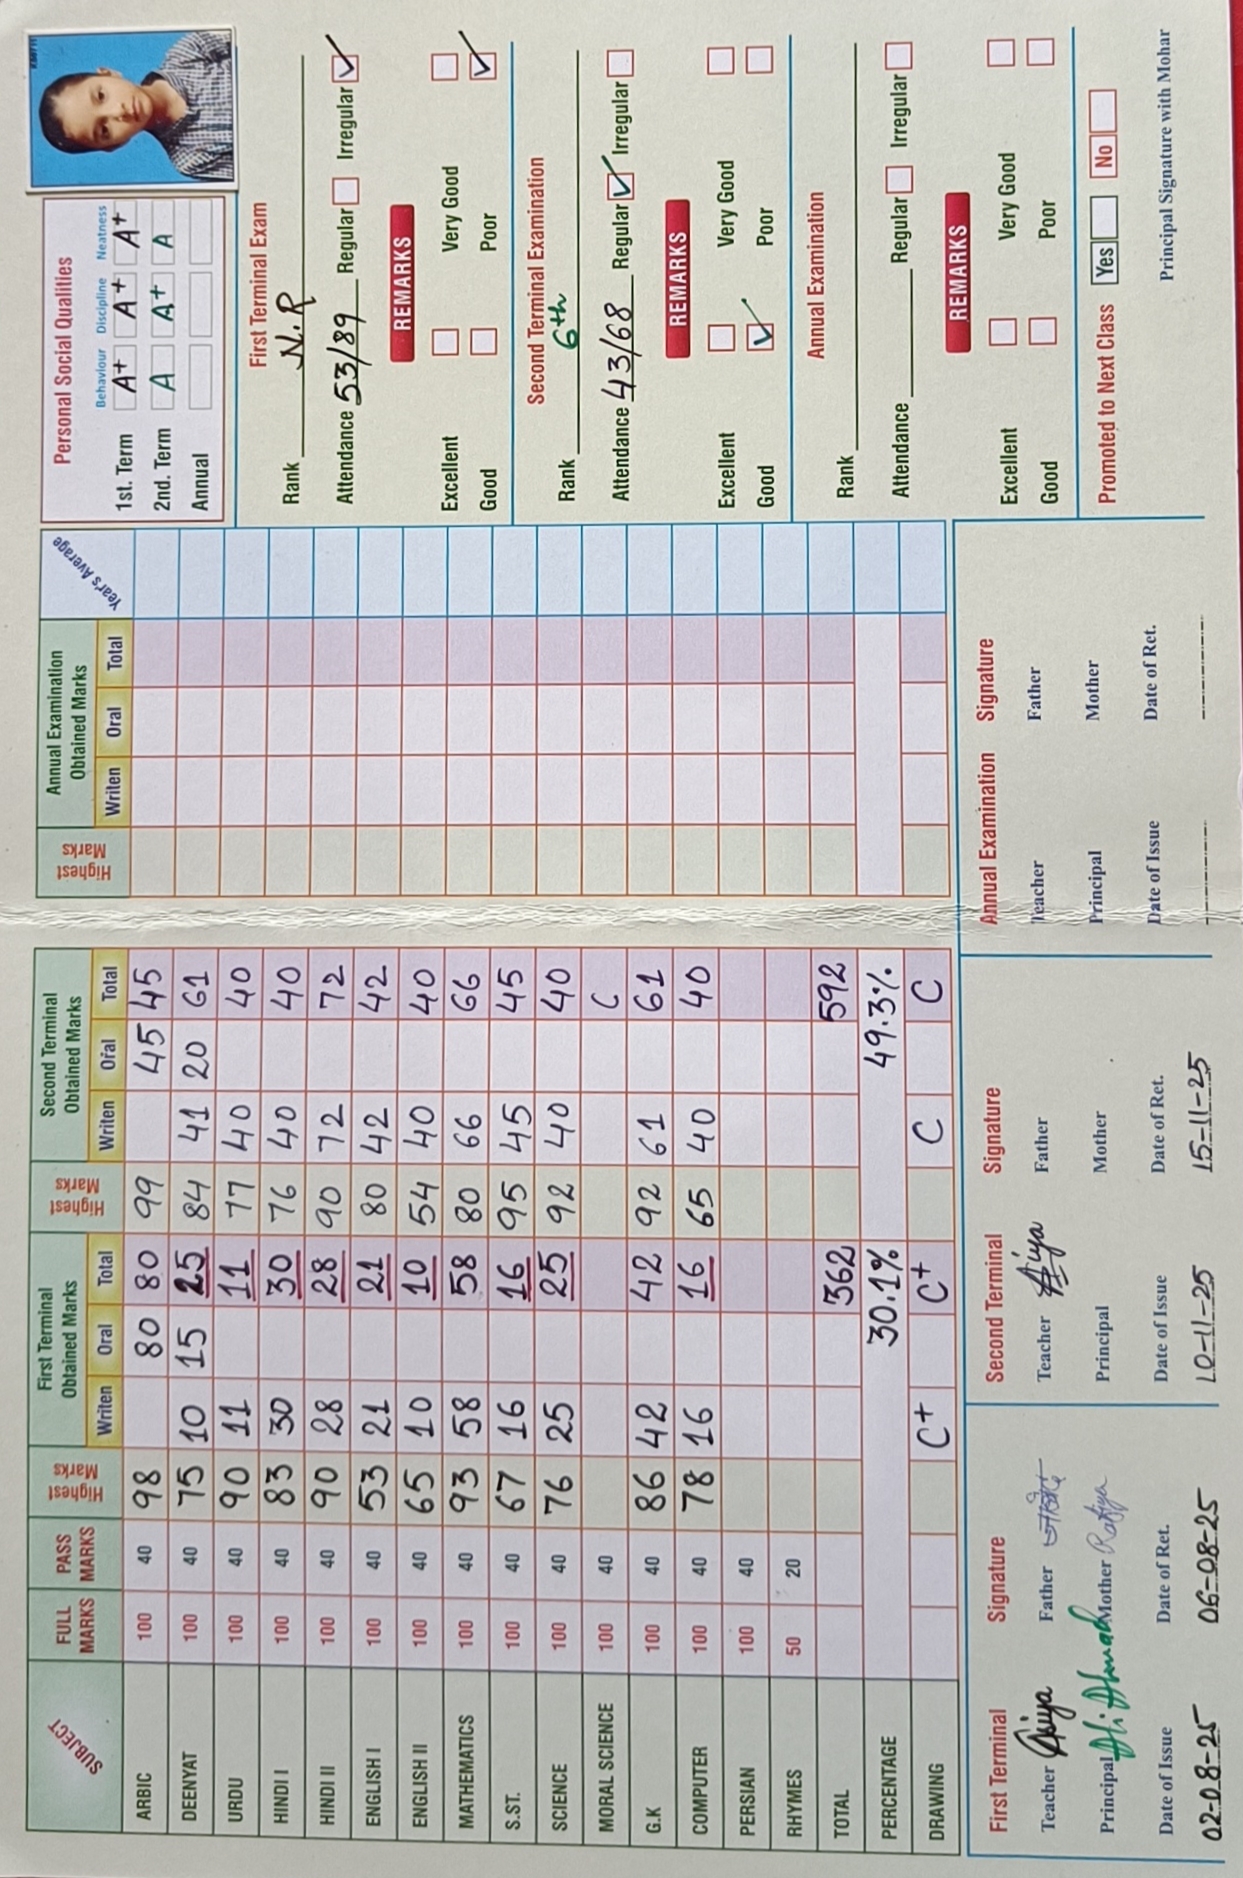 SUBJECT FULL MARKS PASS MARKS Highest Marks First Terminal Obtained Marks Writen Oral Total Highest Marks Second Terminal Obtained Marks Writen Oral Total Highest Marks Annual Examination Obtained Marks Writen Oral Total Year's Average
ARBIC 100 40 98 80 80 99 45 45
DEENYAT 100 40 75 10 15 25 84 41 20 61
URDU 100 40 90 11 11 77 40 40
HINDI I 100 40 83 30 30 76 40 40
HINDI II 100 40 90 28 28 90 72 72
ENGLISH I 100 40 53 21 21 80 42 42
ENGLISH II 100 40 65 10 10 54 40 40
MATHEMATICS 100 40 93 58 58 80 66 66
S.ST. 100 40 67 16 16 95 45 45
SCIENCE 100 40 76 25 25 92 40 40
MORAL SCIENCE 100 40 C
G.K 100 40 86 42 42 92 61 61
COMPUTER 100 40 78 16 16 65 40 40
PERSIAN 100 40
RHYMES 50 20
TOTAL 362 592
PERCENTAGE 30.1% 49.3%
DRAWING C+ C+ C C
First Terminal Signature
Teacher Asiya Father जावेद
Principal Ali Ahmad Mother Rafiya
Date of Issue Date of Ret.
02-08-25 06-08-25
Second Terminal Signature
Teacher Asiya Father
Principal Mother
Date of Issue Date of Ret.
10-11-25 15-11-25
Annual Examination Signature
Teacher Father
Principal Mother
Date of Issue Date of Ret.
Personal Social Qualities
Behaviour Discipline Neatness
1st. Term A+ A+ A+
2nd. Term A A+ A
Annual
First Terminal Exam
Rank N.R
Attendance 53/89 Regular Irregular ✓
REMARKS
Excellent Very Good
Good Poor ✓
Second Terminal Examination
Rank 6th
Attendance 43/68 Regular ✓ Irregular
REMARKS
Excellent Very Good
Good ✓ Poor
Annual Examination
Rank
Attendance Regular Irregular
REMARKS
Excellent Very Good
Good Poor
Promoted to Next Class Yes No
Principal Signature with Mohar